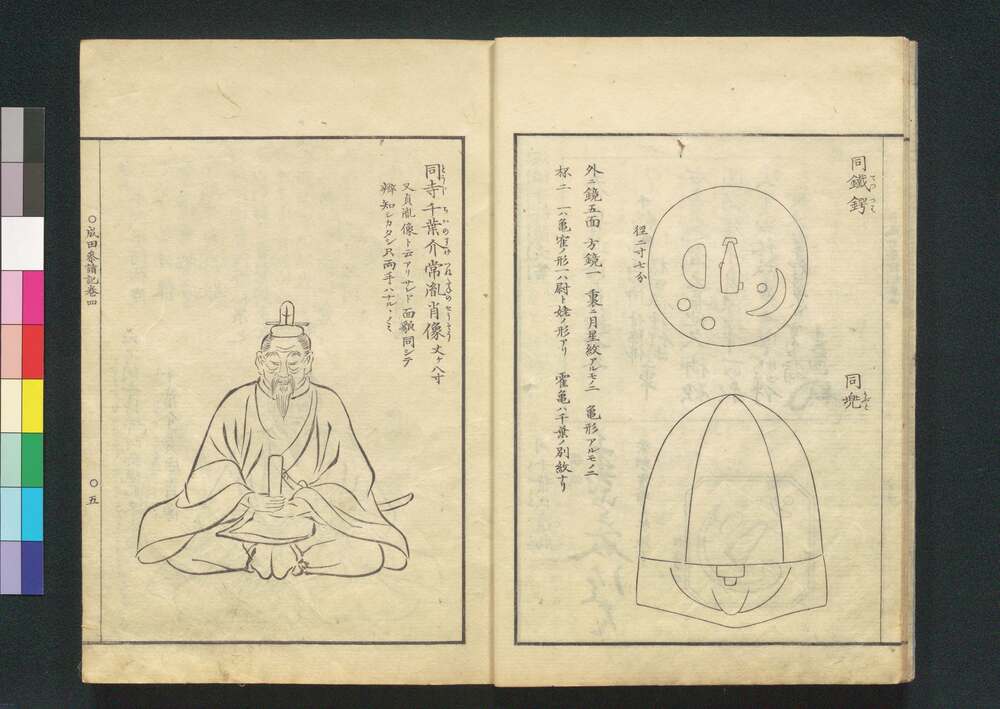 同鐵鍔
てつ つば
径二寸七分
同兜
外ニ鏡五面 方鏡一 裏ニ月星紋アルモノ二 亀形アルモノ三
杯二 一ハ亀雀ノ形一ハ尉ト姥ノ形アリ 霍亀ハ千葉ノ別紋ナリ
同寺千葉介常胤肖像 丈ケ八寸
又貞胤像ト云アリサレド面貌同シテ
辨知シカタシ只両手ハナル丶ノミ
○成田参詣記巻四
○五